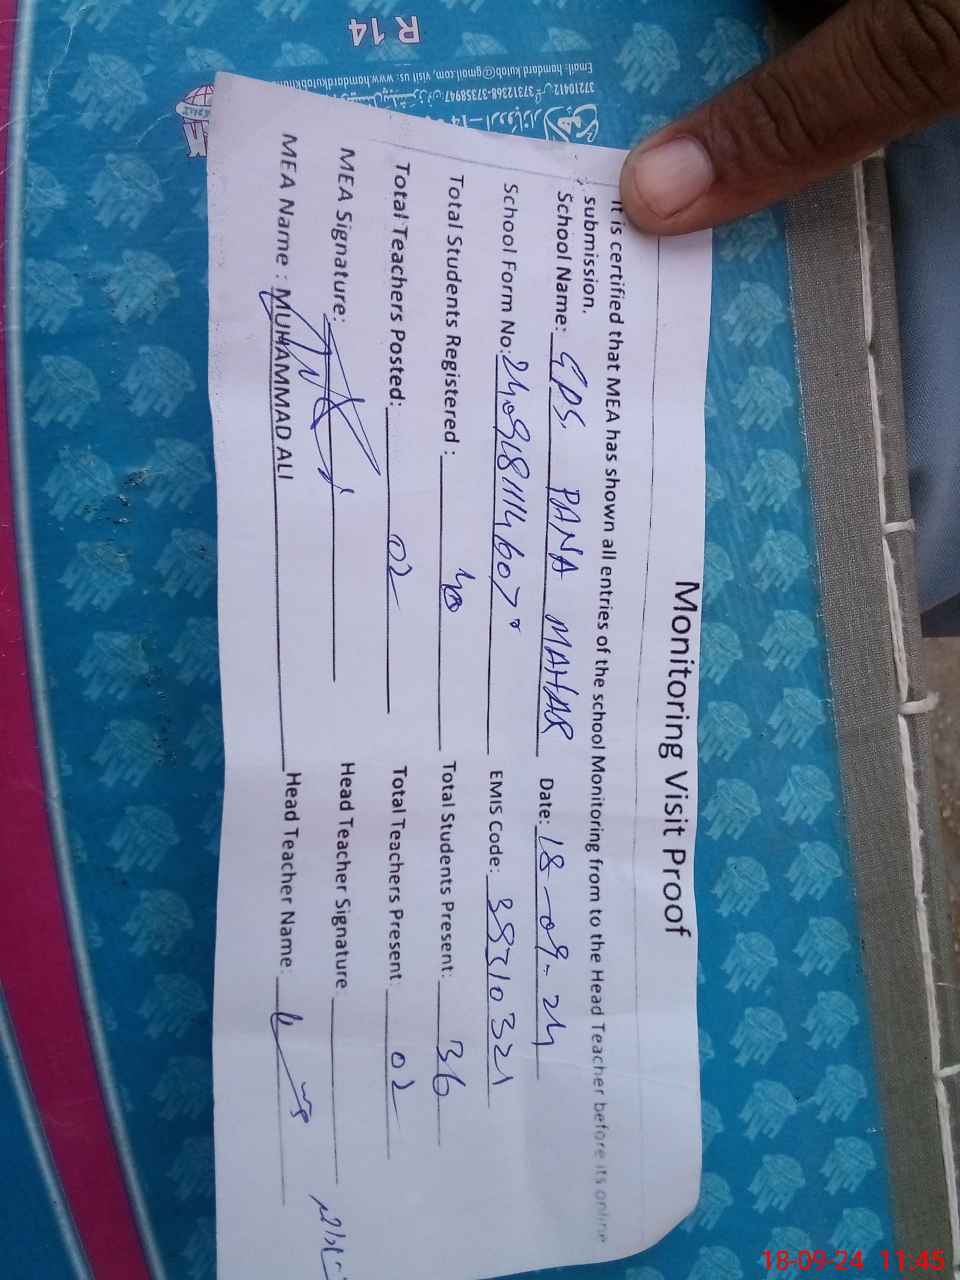 Monitoring Visit Proof
It is certified that MEA has shown all entries of the school Monitoring from to the Head Teacher before its online
submission.
School Name: GPS. PANA MAHAR Date: 18-09-24
School Form No: EMIS Code:
Total Students Registered : 40 Total Students Present: 36
Total Teachers Posted: 02 Total Teachers Present: 02
MEA Signature: Head Teacher Signature
MEA Name : MUHAMMAD ALI Head Teacher Name:
R 14
37210412
37312368-37358947
Email: hamdard kutob@gmail.com, visit us: www.hamdardkutobkhana
18-09-24 11:45